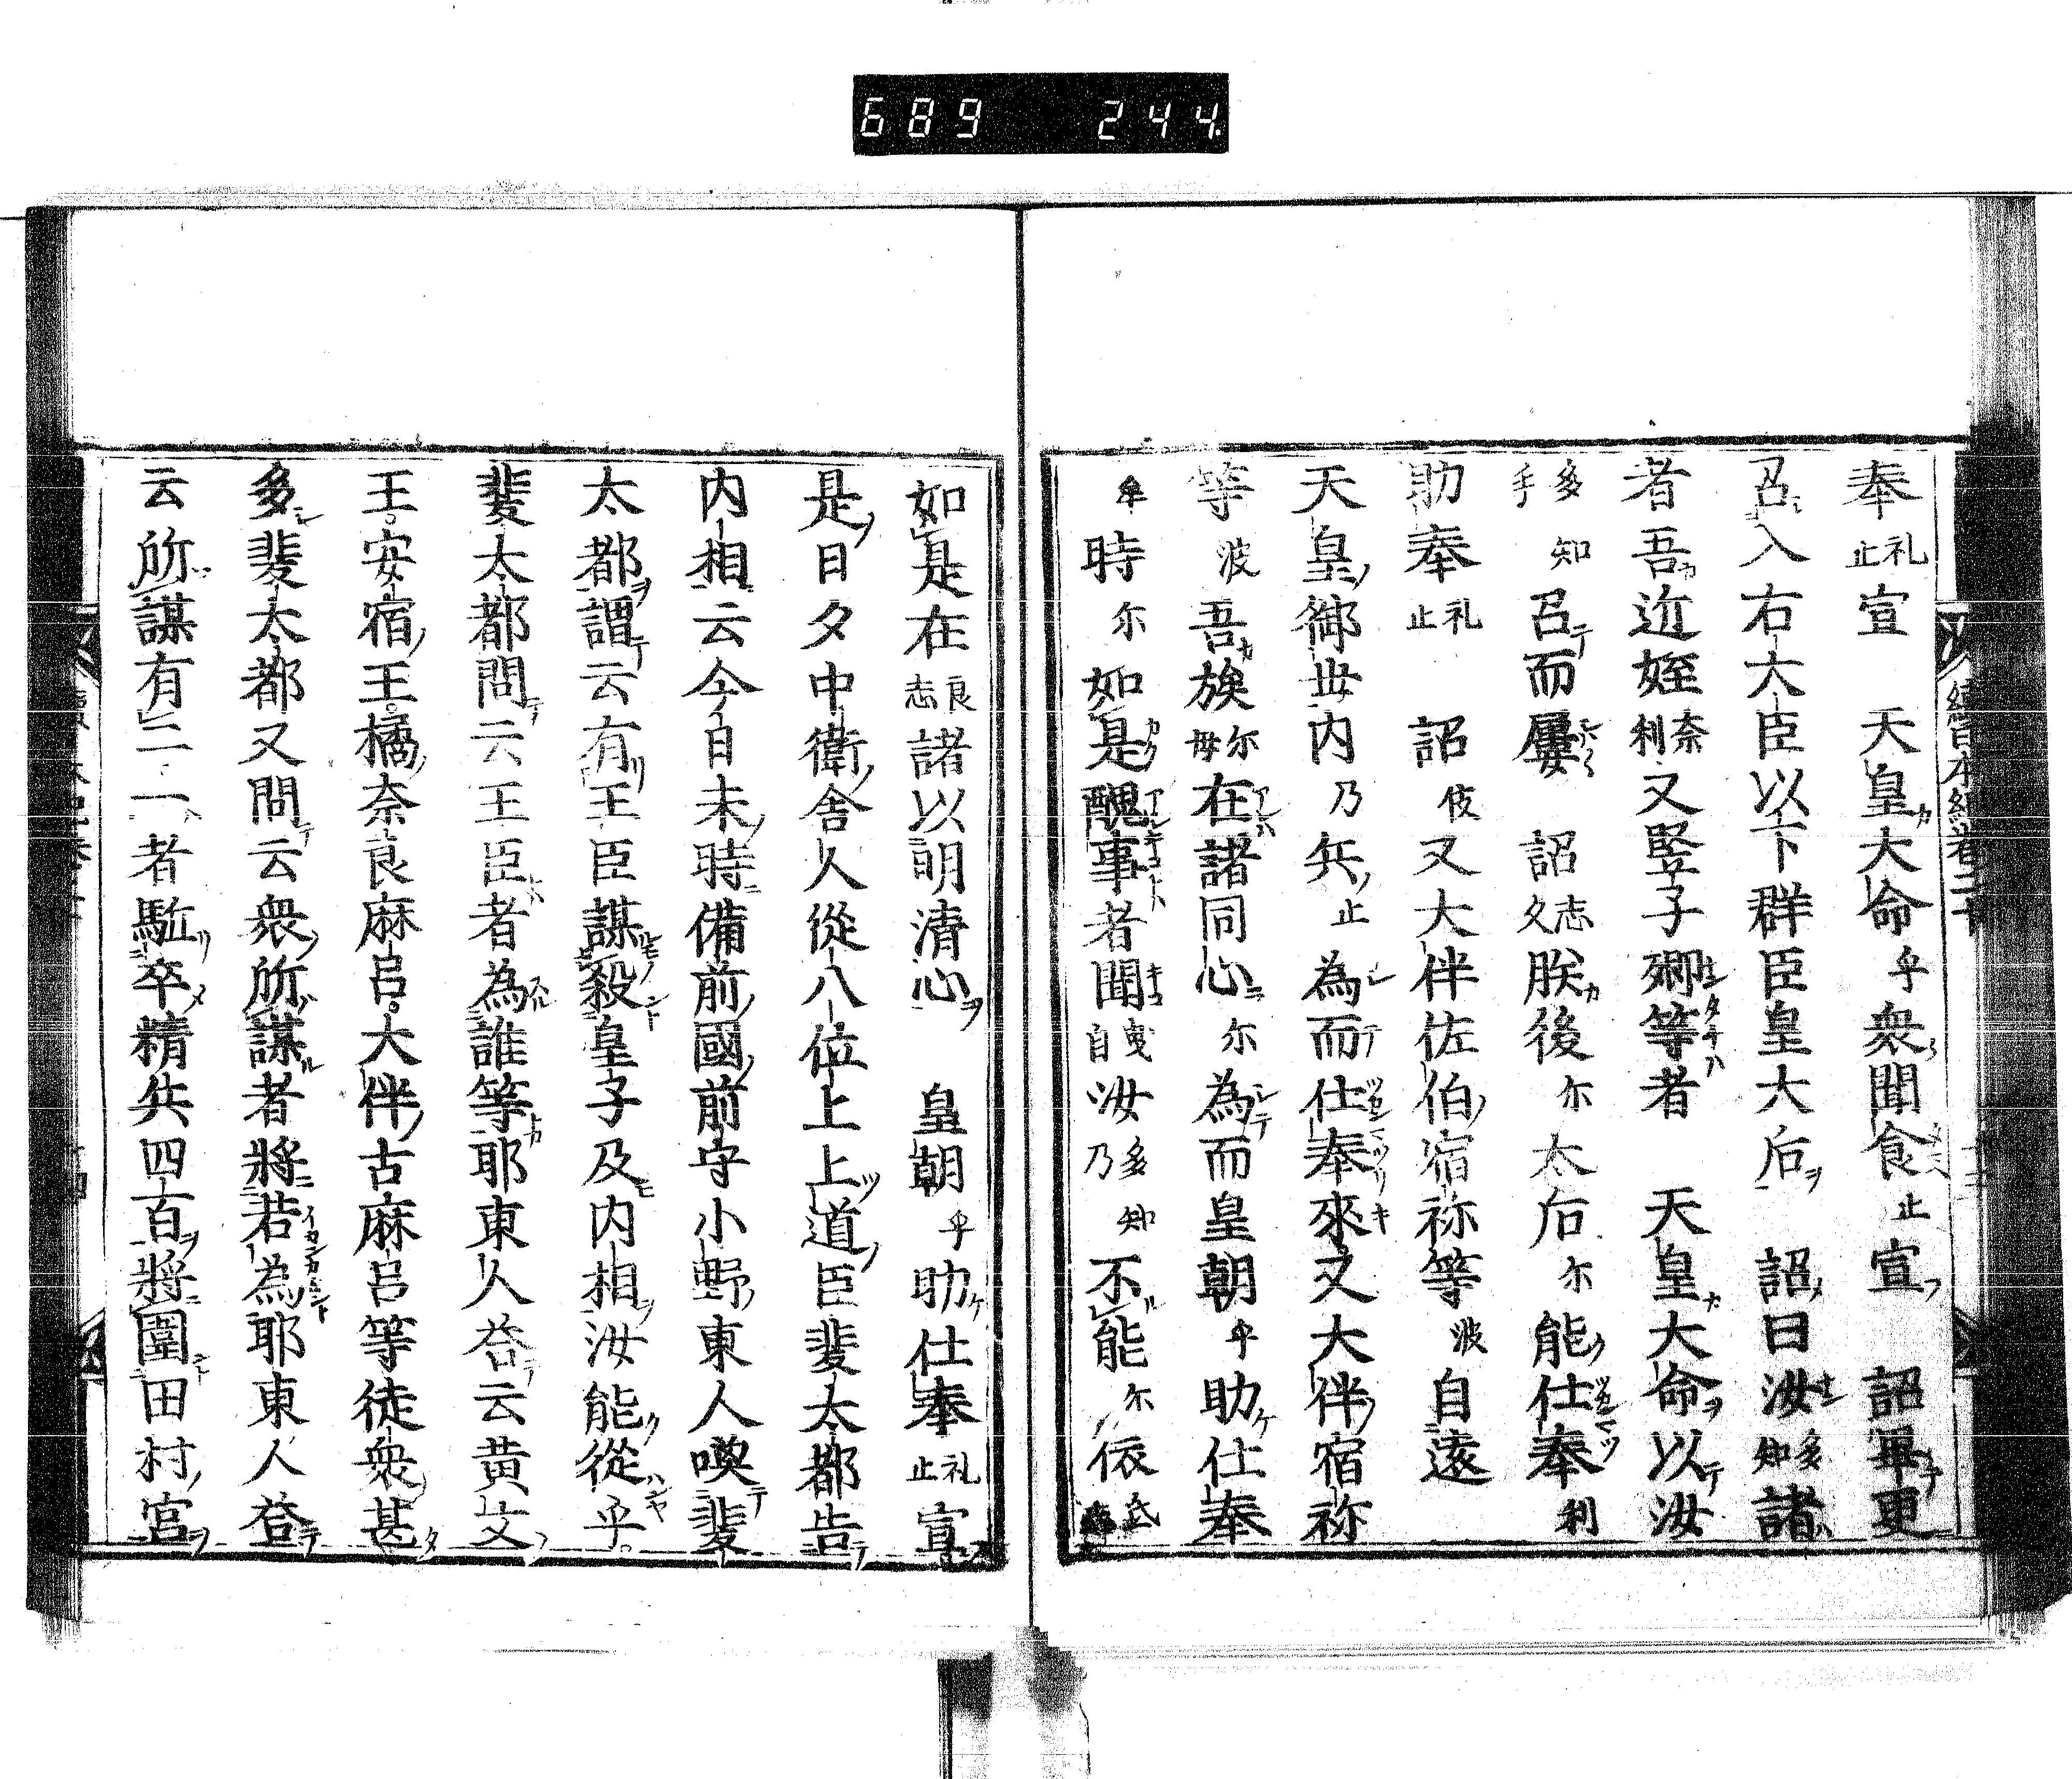 689 244.
續日本紀卷二十
奉礼止宣 天皇大命乎衆聞食止宣 詔畢更
召入右大臣以下群臣皇大后 詔曰汝多知諸
者吾近姪奈利又竪子卿等者 天皇大命以汝
多知手召而屢 詔志久朕後尓太后尓能仕奉利
助奉礼止 詔伎又大伴佐伯宿祢等波自遠
天皇御世内乃兵止為而仕奉來又大伴宿祢
等波吾族尓毋在諸同心尓為而皇朝乎助仕奉
牟時尓如是醜事者聞曳自汝多知乃不能尓依氐
如是在良志諸以明清心 皇朝乎助仕奉礼止宣
是日夕中衛舎人從八位上上道臣斐太都告
内相云今日未時備前國前守小野東人喚斐
太都謂云有王臣謀殺皇子及内相汝能從乎
斐太都問云王臣者為誰等耶東人荅云黄文
王安宿王橘奈良麻呂大伴古麻呂等徒衆甚
多斐太都又問云衆所謀者將若為耶東人荅
云所謀有二一者駈卒精兵四百將圍田村宮